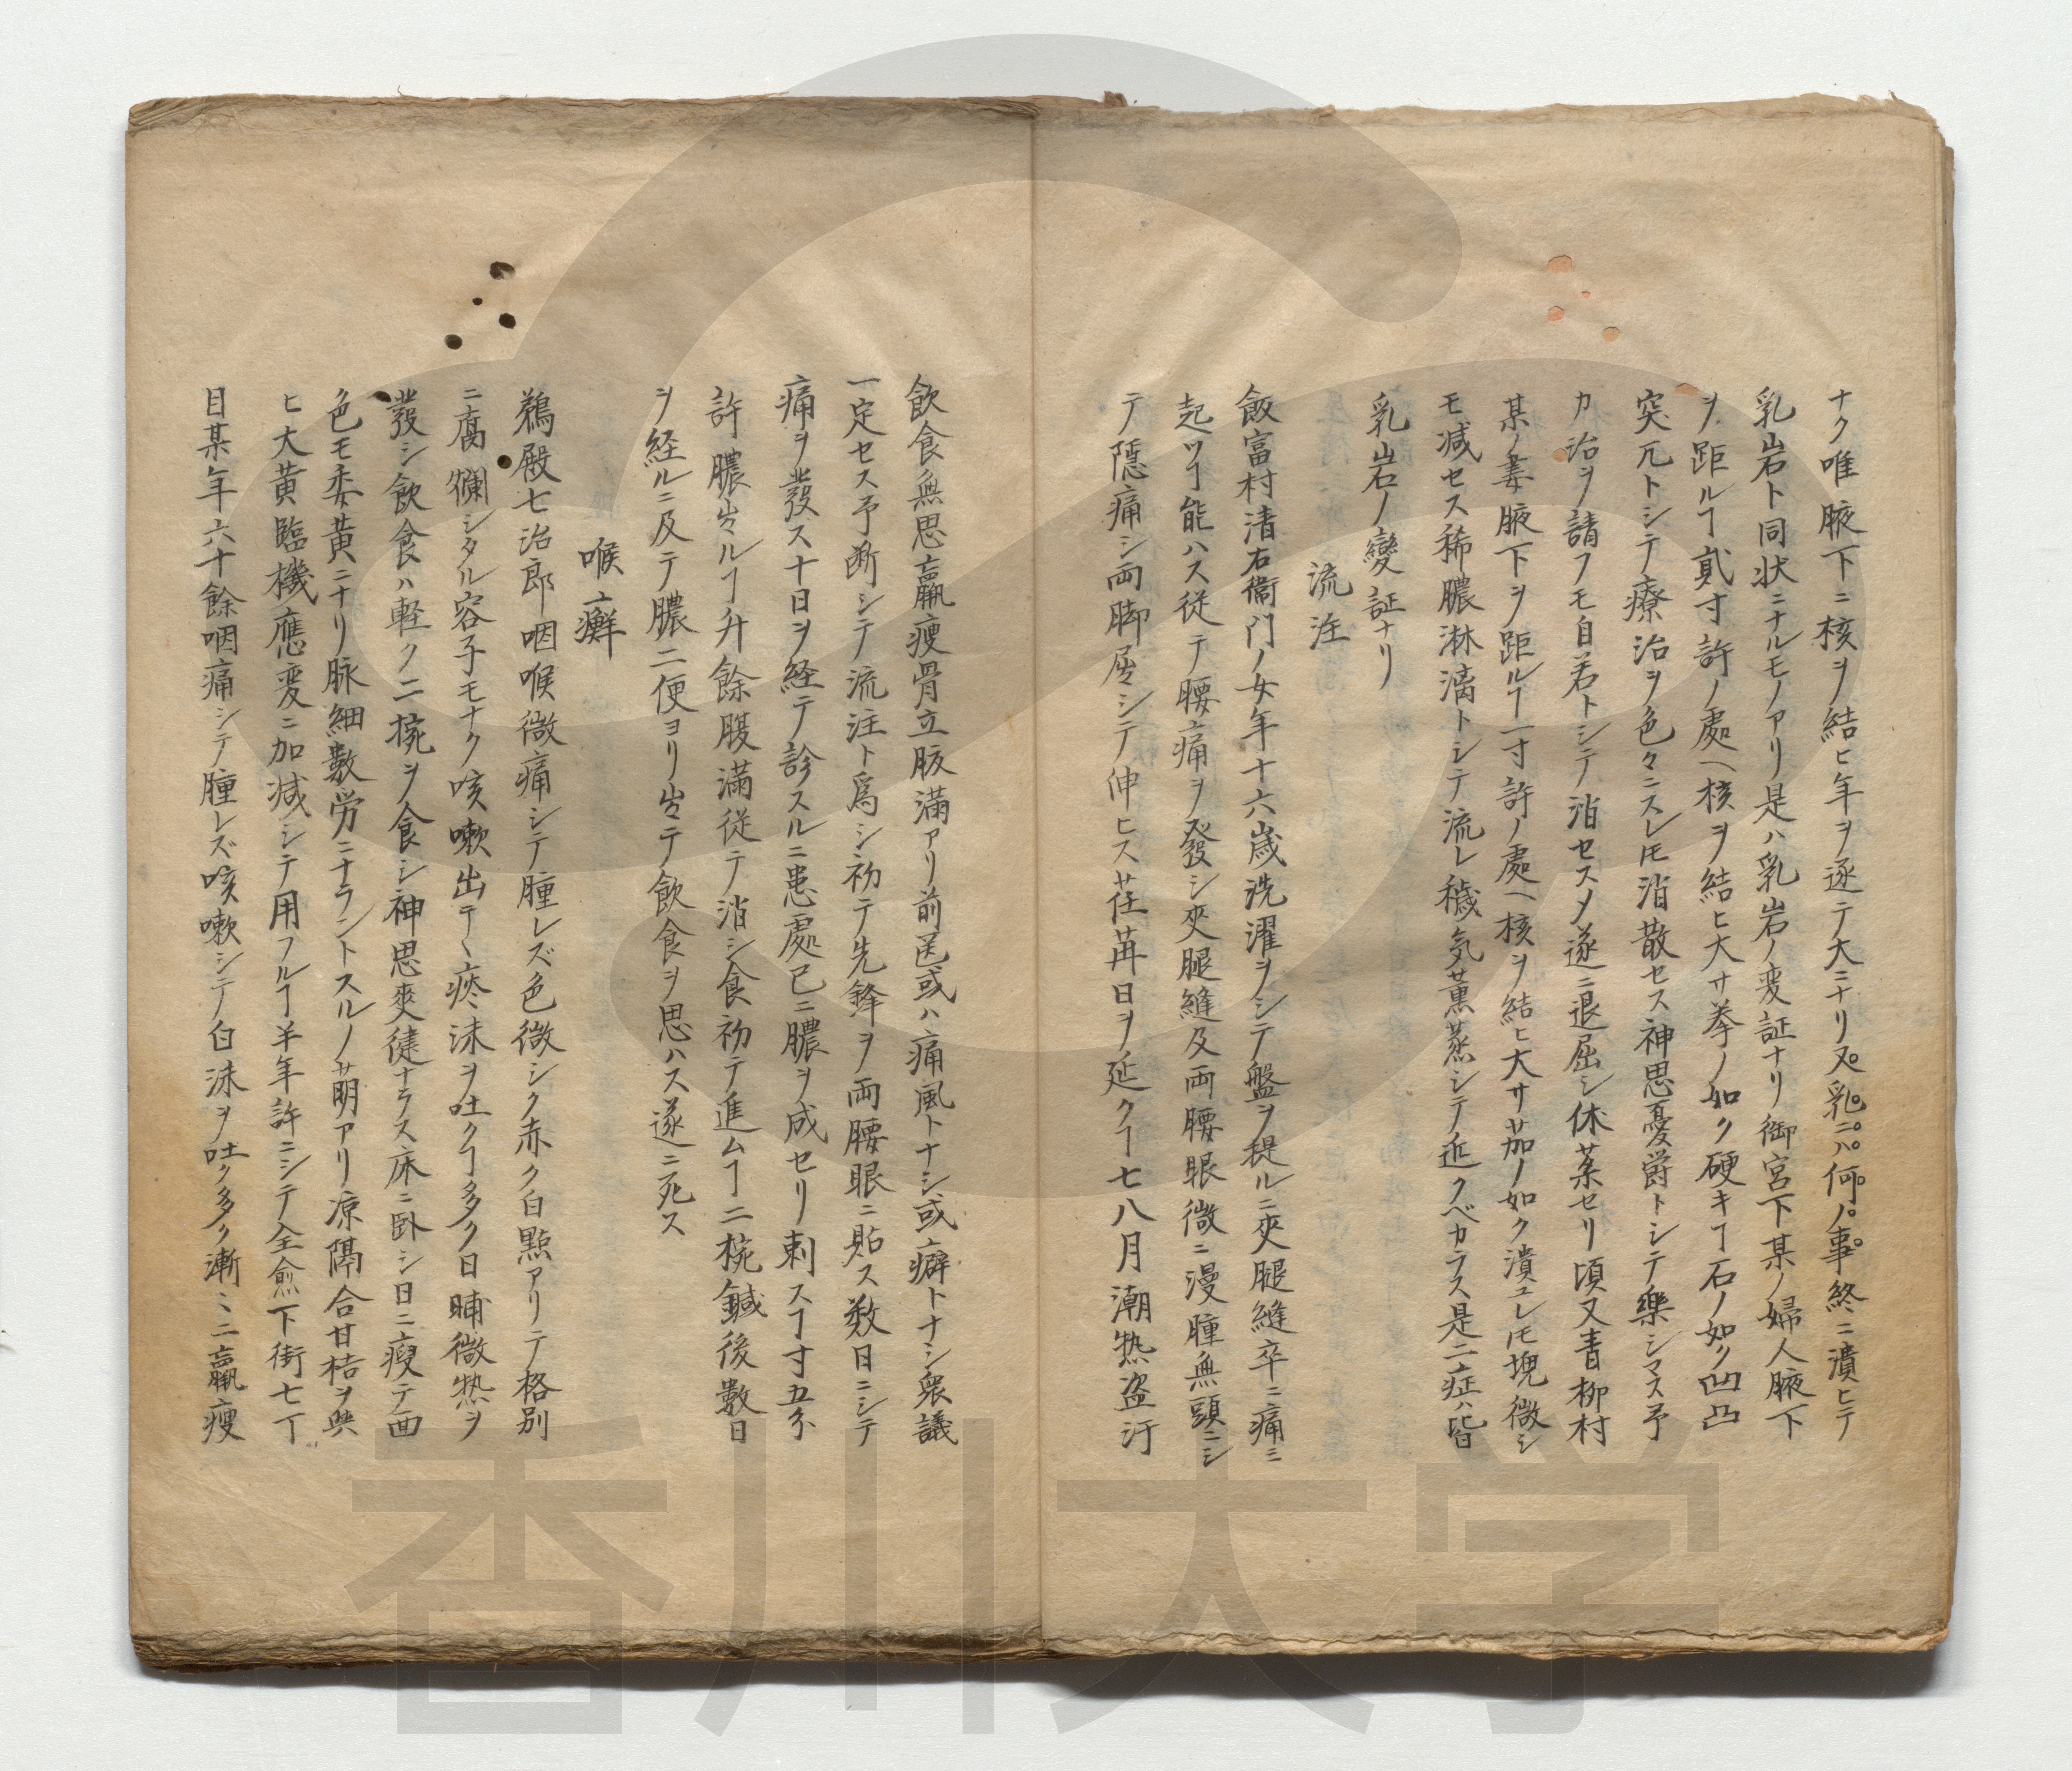 ナク唯腋下ニ核ヲ結ヒ年ヲ逐テ大ニナリ又乳ニハ何ノ事終ニ潰ヒテ
乳岩ト同状ニナルモノアリ是ハ乳岩ノ変証ナリ御宮下某ノ婦人腋下
ヲ距ルヿ貳寸許ノ處ヘ核ヲ結ヒ大サ拳ノ如ク硬キヿ石ノ如ク凹凸
突兀トシテ療治ヲ色々ニスレ𪜈消散セス神思憂欝トシテ樂シマス予
カ治ヲ請フモ自若トシテ消セス〆遂ニ退屈シ休薬セリ頃又青柳村
某ノ妻腋下ヲ距ルヿ一寸許ノ處ヘ核ヲ結ヒ大サ茄ノ如ク潰ユレ𪜈塊微シ
モ減セス稀膿淋漓トシテ流レ穢気薫蒸シテ近クベカラス是二症ハ皆
乳岩ノ變証ナリ
流注
飯富村清右衞門ノ女年十六歳洗濯ヲシテ盤ヲ提ルニ夾腿縫卒ニ痛ミ
起ツヿ能ハス従テ腰痛ヲ發シ夾腿縫及両腰眼微ニ漫腫無頭ニシ
テ隱痛シ両脚屈シテ伸ヒス荏苒日ヲ延クヿ七八月潮热盗汗
飲食無思羸痩骨立腹満アリ前医或ハ痛風トナシ或ハ癖トナシ衆議
一定セス予断シテ流注ト爲シ初テ先鋒ヲ両腰眼ニ貼ス数日ニシテ
痛ヲ發ス十日ヲ経テ診スルニ患處已ニ膿ヲ成セリ刺スヿ寸五分
許膿出ルヿ升餘腹滿従テ消シ食初テ進ムヿ二椀鍼後數日
ヲ経ルニ及テ膿二便ヨリ出テ飲食ヲ思ハス遂ニ死ス
喉癬
鵜殿七治郎咽喉微痛シテ腫レズ色微シク赤ク白點アリテ格別
ニ腐爛シタル容子モナク咳嗽出テ痰沫ヲ吐クヿ多ク日晡微热ヲ
發シ飲食ハ軽ク二椀ヲ食シ神思爽徤ナラス床ニ臥シ日ニ瘦テ面
色モ委黄ニナリ脉細數労ニナラントスルノ萠アリ凉隔合甘桔ヲ與
ヒ大黄臨機應変ニ加減シテ用フルヿ半年許ニシテ全愈下街七丁
目某年六十餘咽痛シテ腫レズ咳嗽シテ白沫ヲ吐ク多ク漸々ニ羸瘦